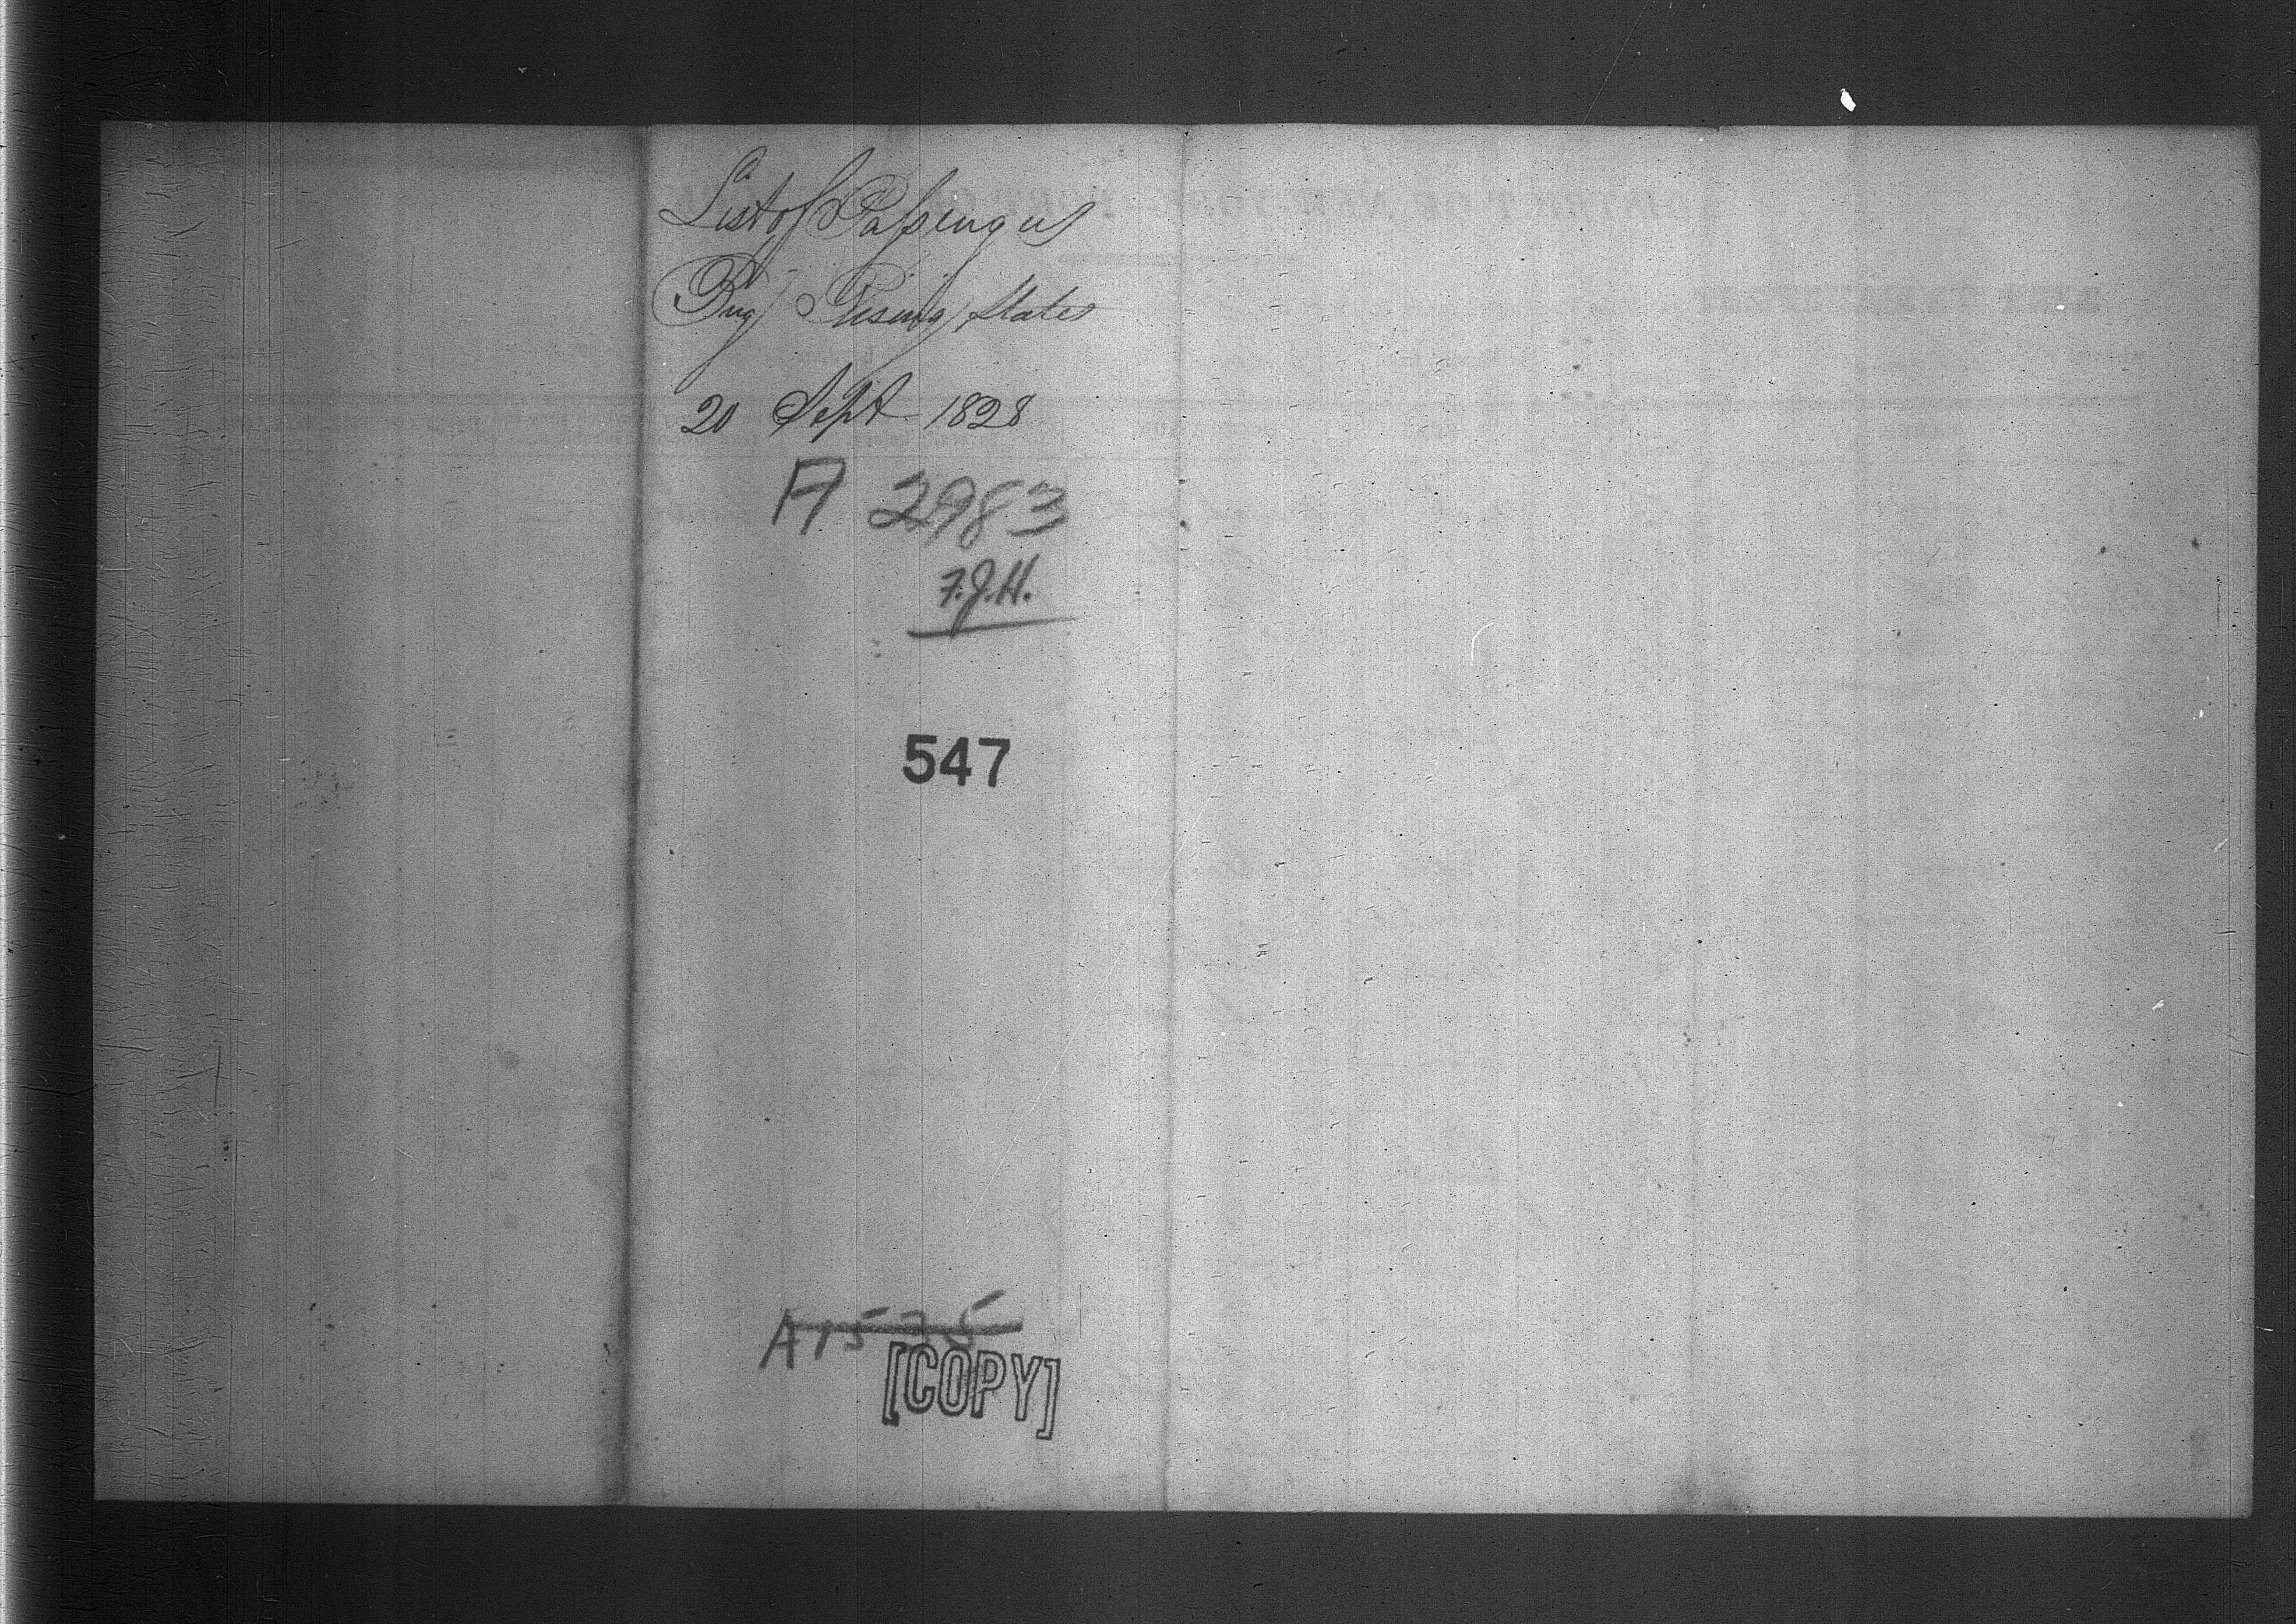 List of Passengers
Brig Rising States
20 Sept 1828
A 2983
F.J.H.
547
A1535
[COPY]